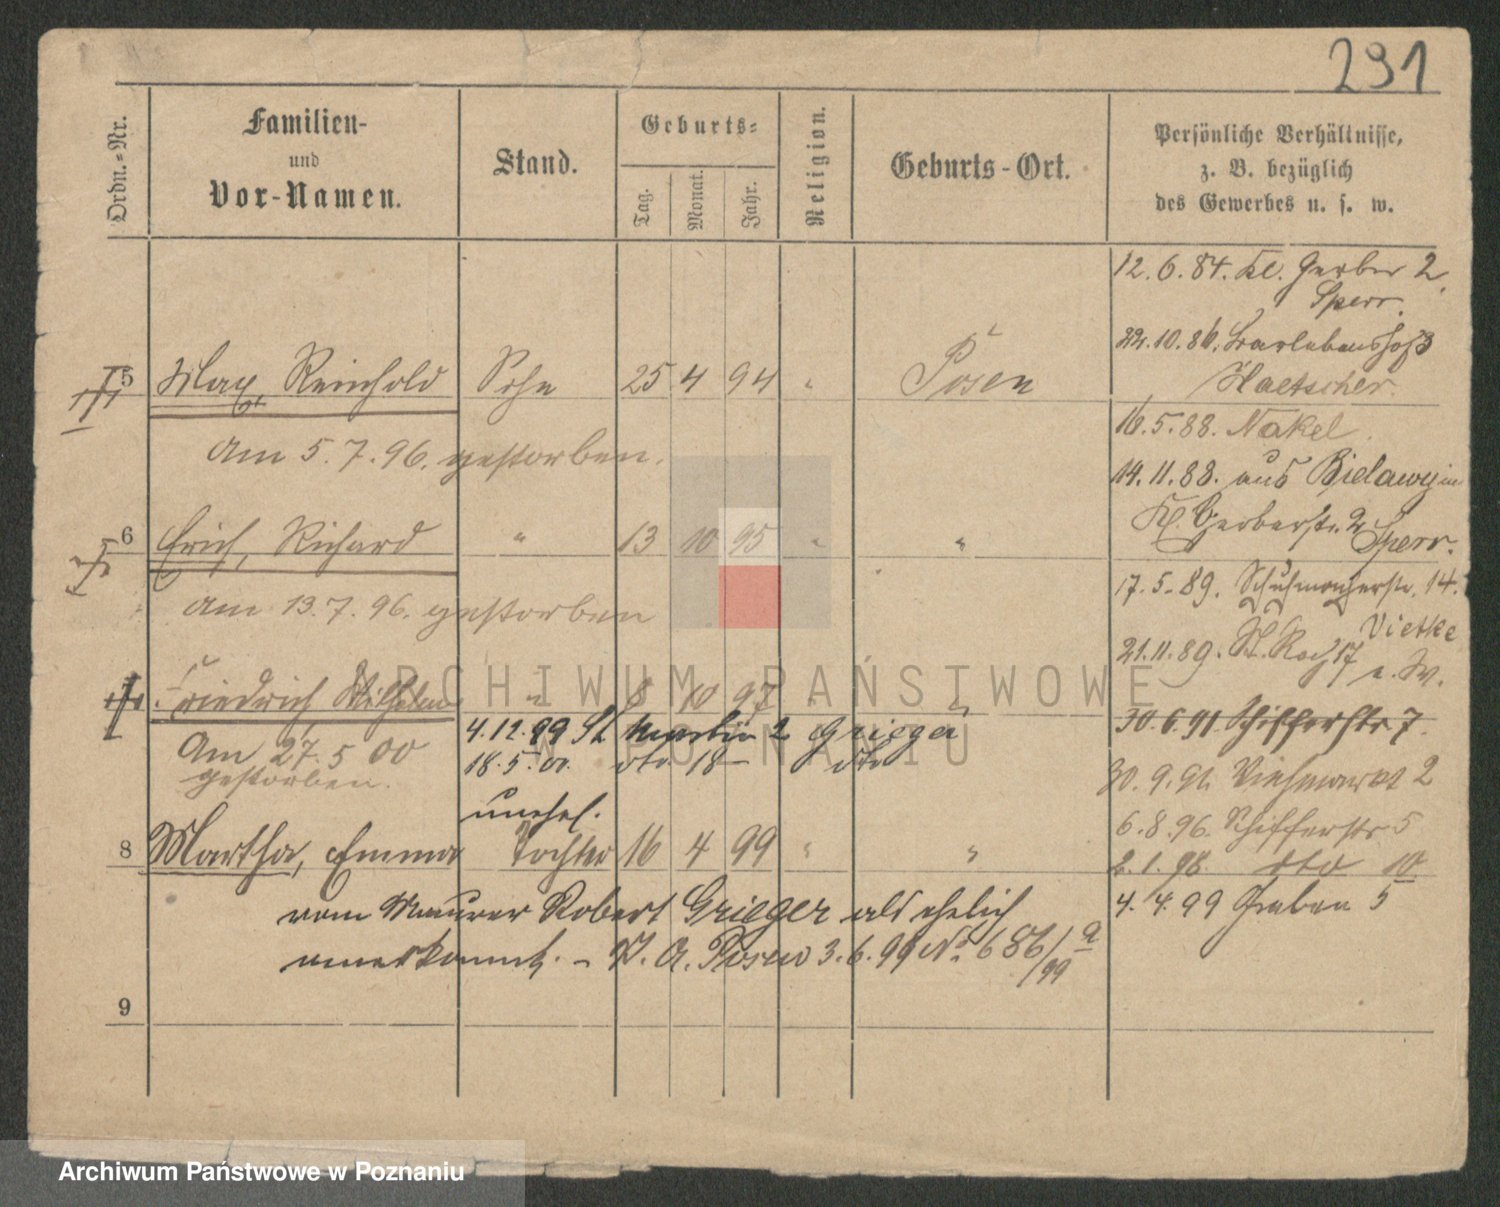 291
Ordn.-Nr.
Familien-
und
Vor-Namen.
Stand.
Geburts-
Tag.
Monat.
Jahr.
Religion.
Geburts-Ort.
Persönliche Verhältnisse,
z. B. bezüglich
des Gewerbes u. s. w.
12.6.84. Kl. Gerber 2.
Sperr.
5 Max, Reinhold Sohn 25 4 94 " Posen
22.10.86.
Haetscher.
am 5.7.96. gestorben.
16.5.88. Nakel.
14.11.88. aus Bielawy in
Kl. Gerberstr. 2 Sperr.
6 Erich, Richard " 13 10 95 " "
am 13.7.96. gestorben
17.5.89. Schuhmacherstr. 14.
Vietke
21.11.89. St. Roch 17
Friedrich Wilhelm " 8 10 97 " "
30.6.91. Schifferstr 7.
Am 27.5 00
gestorben.
4.12.99 St Martin 2 Grieger
18.5.01. dto 18 - dto
30.9.91. Viehmarkt 2
6.8.96. Schifferstr 5
2.1.98. dto 10.
4.4.99 Graben 5
unehel.
8 Martha, Emma Tochter 16 4 99 " "
vom Maurer Robert Grieger als ehelich
anerkannt. - St. A. Posen 3.6.99 No 686/99
9
ARCHIWUM PAŃSTWOWE
W POZNANIU
Archiwum Państwowe w Poznaniu